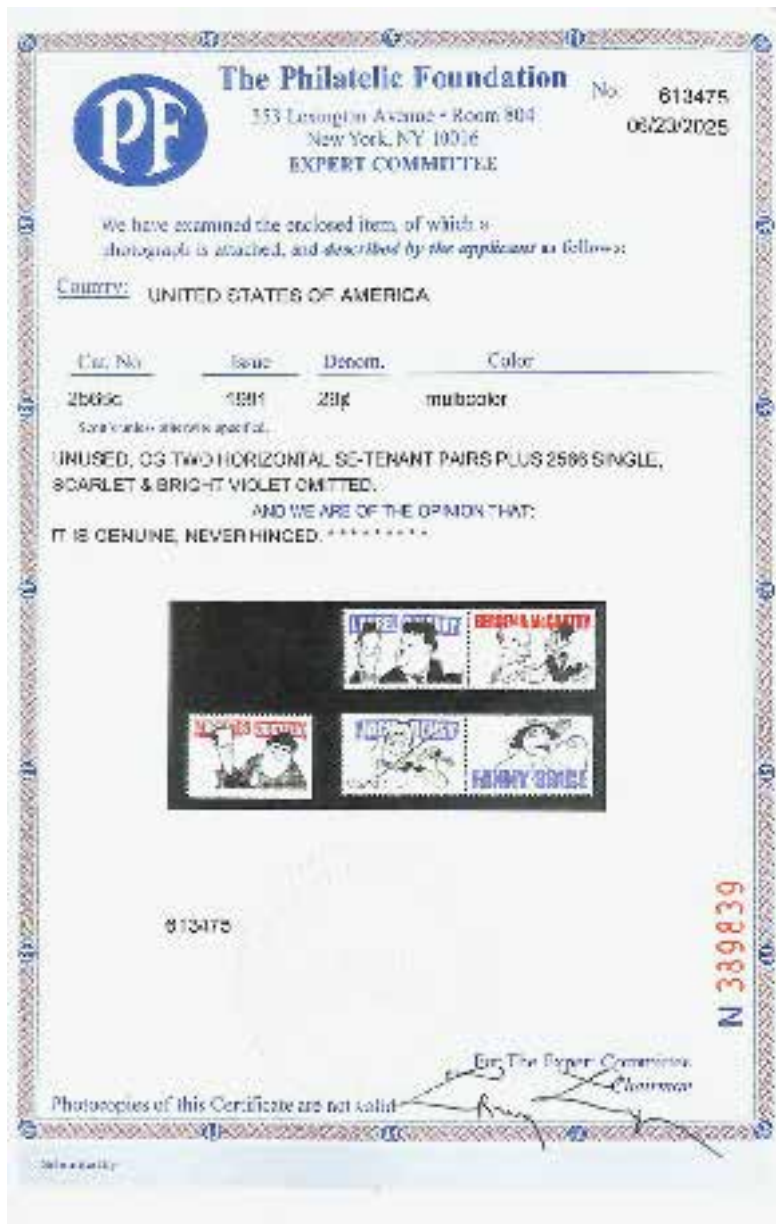 PF
The Philatelic Foundation
No. 613475
353 Lexington Avenue • Room 804
06/23/2025
New York, NY 10016
EXPERT COMMITTEE
We have examined the enclosed item, of which a
photograph is attached, and described by the applicant as follows:
Country: UNITED STATES OF AMERICA
Cat. No. Issue Denom. Color
2566c 1991 29¢ multicolor
Scott unless otherwise specified.
UNUSED, OG TWO HORIZONTAL SE-TENANT PAIRS PLUS 2566 SINGLE,
SCARLET & BRIGHT VIOLET OMITTED.
AND WE ARE OF THE OPINION THAT:
IT IS GENUINE, NEVER HINGED. * * * * * * * * *
BERGEN & McCARTHY
FANNY BRICE
613475
N 389839
For The Expert Committee
Chairman
Photocopies of this Certificate are not valid